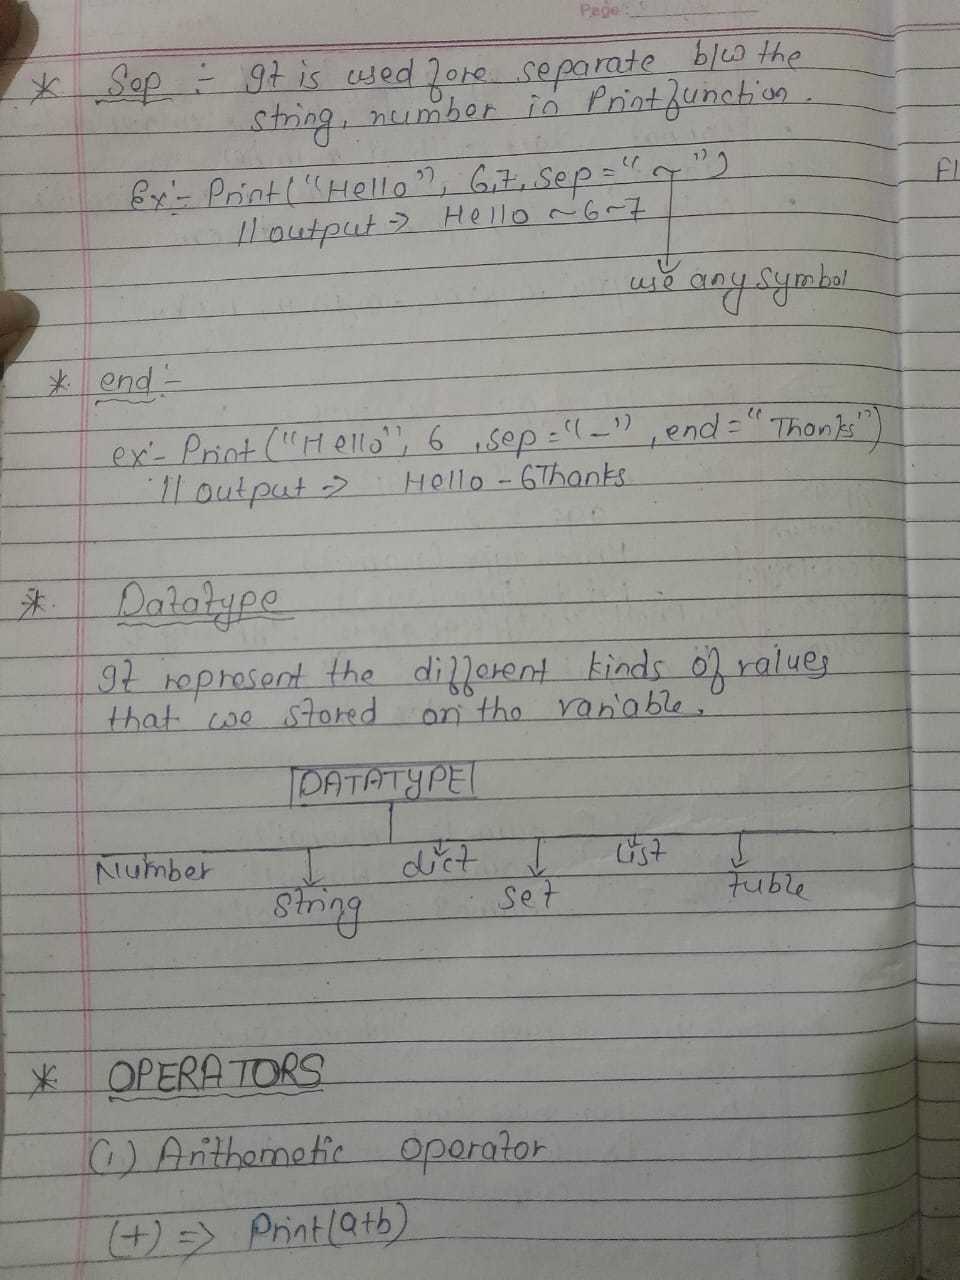 Page :
* Sep :- It is used fore separate b/w the
string, number in Print function.
Ex:- Print("Hello", 6,7, Sep = "~")
// output => Hello ~6~7
use any symbol
* end :-
ex:- Print ("Hello", 6 ,sep = "-" , end = "Thanks")
// output => Hello - 6Thanks
* Datatype
It represent the different kinds of values
that we stored on the variable.
DATATYPE
Number String dict Set List tuble
* OPERATORS
(i) Arithemetic operator
(+) => Print(a+b)